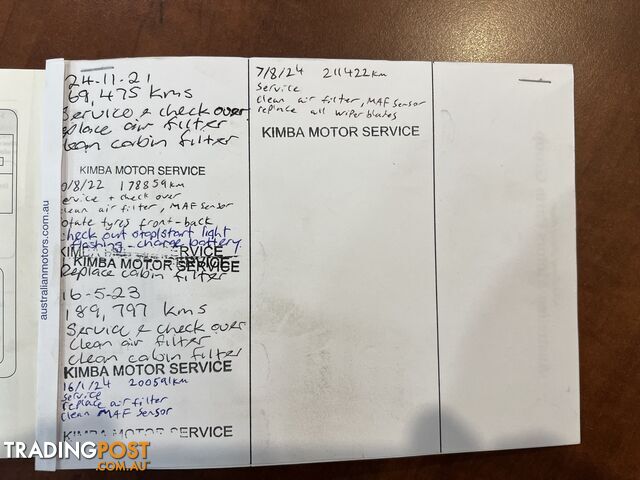 24-11-21
69,475 kms
Service & check over
eplace air filter
lean cabin filter
KIMBA MOTOR SERVICE
0/8/22 178859km
ervice + check over
lean air filter, MAF sensor
otate tyres front-back
heck out stop/start light
flashing - charge battery
KIMBA MOTOR SERVICE
Replace cabin filter
16-5-23
189,797 kms
Service & check over
Clean air filter
clean cabin filter
KIMBA MOTOR SERVICE
16/1/24 200591km
service
replace air filter
clean MAF sensor
KIMBA MOTOR SERVICE
7/8/24 211422km
service
clean air filter, MAF sensor
replace all wiper blades
KIMBA MOTOR SERVICE
australianmotors.com.au
TRADINGPOST
.com.au